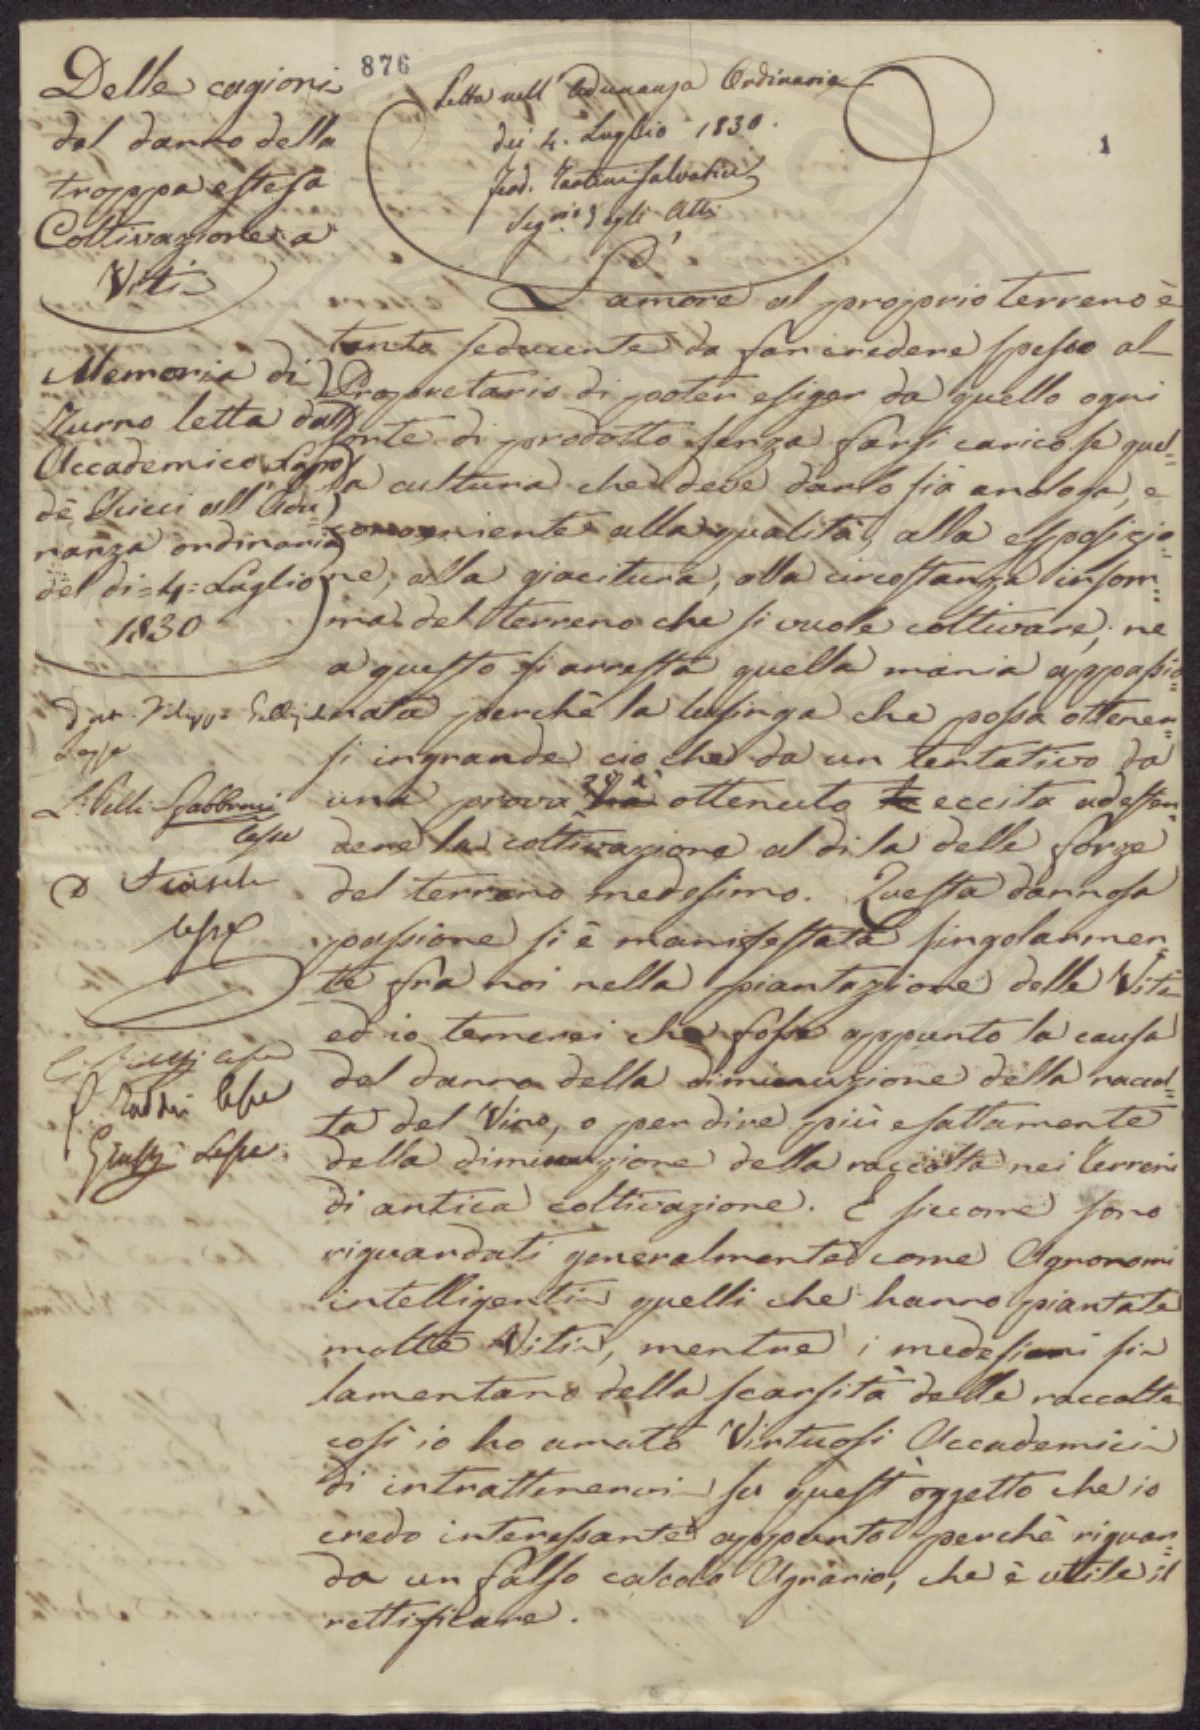 876
1
Delle cagioni
del danno della
troppa estesa
Coltivazione a
Viti
Letta nell' Adunanza Ordinaria
dei 4. Luglio 1830.
Ferd. Tartini Salvatici
Seg.rio degli Atti
Memoria di
Turno letta dall'
Accademico Lapo
de' Ricci all' Adu-
nanza ordinaria
del dì = 4 = Luglio
1830
Lesse
Lesse
Lesse
Lesse
Lesse
L'amore al proprio terreno è
tanto seducente da far credere spesso al
Proprietario di poter esiger da quello ogni
sorte di prodotto senza farsi carico se quel=
la cultura che deve darlo sia analoga, e
conveniente alla qualità, alla esposizio=
ne, alla giacitura, alla circostanza insom=
ma del terreno che si vuole coltivare; ne
a questo si arresta quella mania appassio=
nata perchè la lusinga che possa ottener=
si in grande ciò che da un tentativo da
una prova si è ottenuto eccita ad esten=
dere la coltivazione al di la delle forze
del terreno medesimo. Questa dannosa
passione si è manifestata singolarmen=
te fra noi nella piantazione delle Viti
ed io temerei che fosse appunto la causa
del danno della diminuzione della raccol=
ta del Vino, o per dire più esattamente
della diminuzione della raccolta nei terreni
di antica coltivazione. E siccome sono
riguardati generalmente come Agronomi
intelligenti quelli che hanno piantate
molte Viti, mentre i medesimi si
lamentano della scarsità delle raccolte
così io ho amato Virtuosi Accademici
di intrattenervi su quest' oggetto che io
credo interessante appunto perchè riguar=
da un falso calcolo Agrario, che è utile il
rettificare.